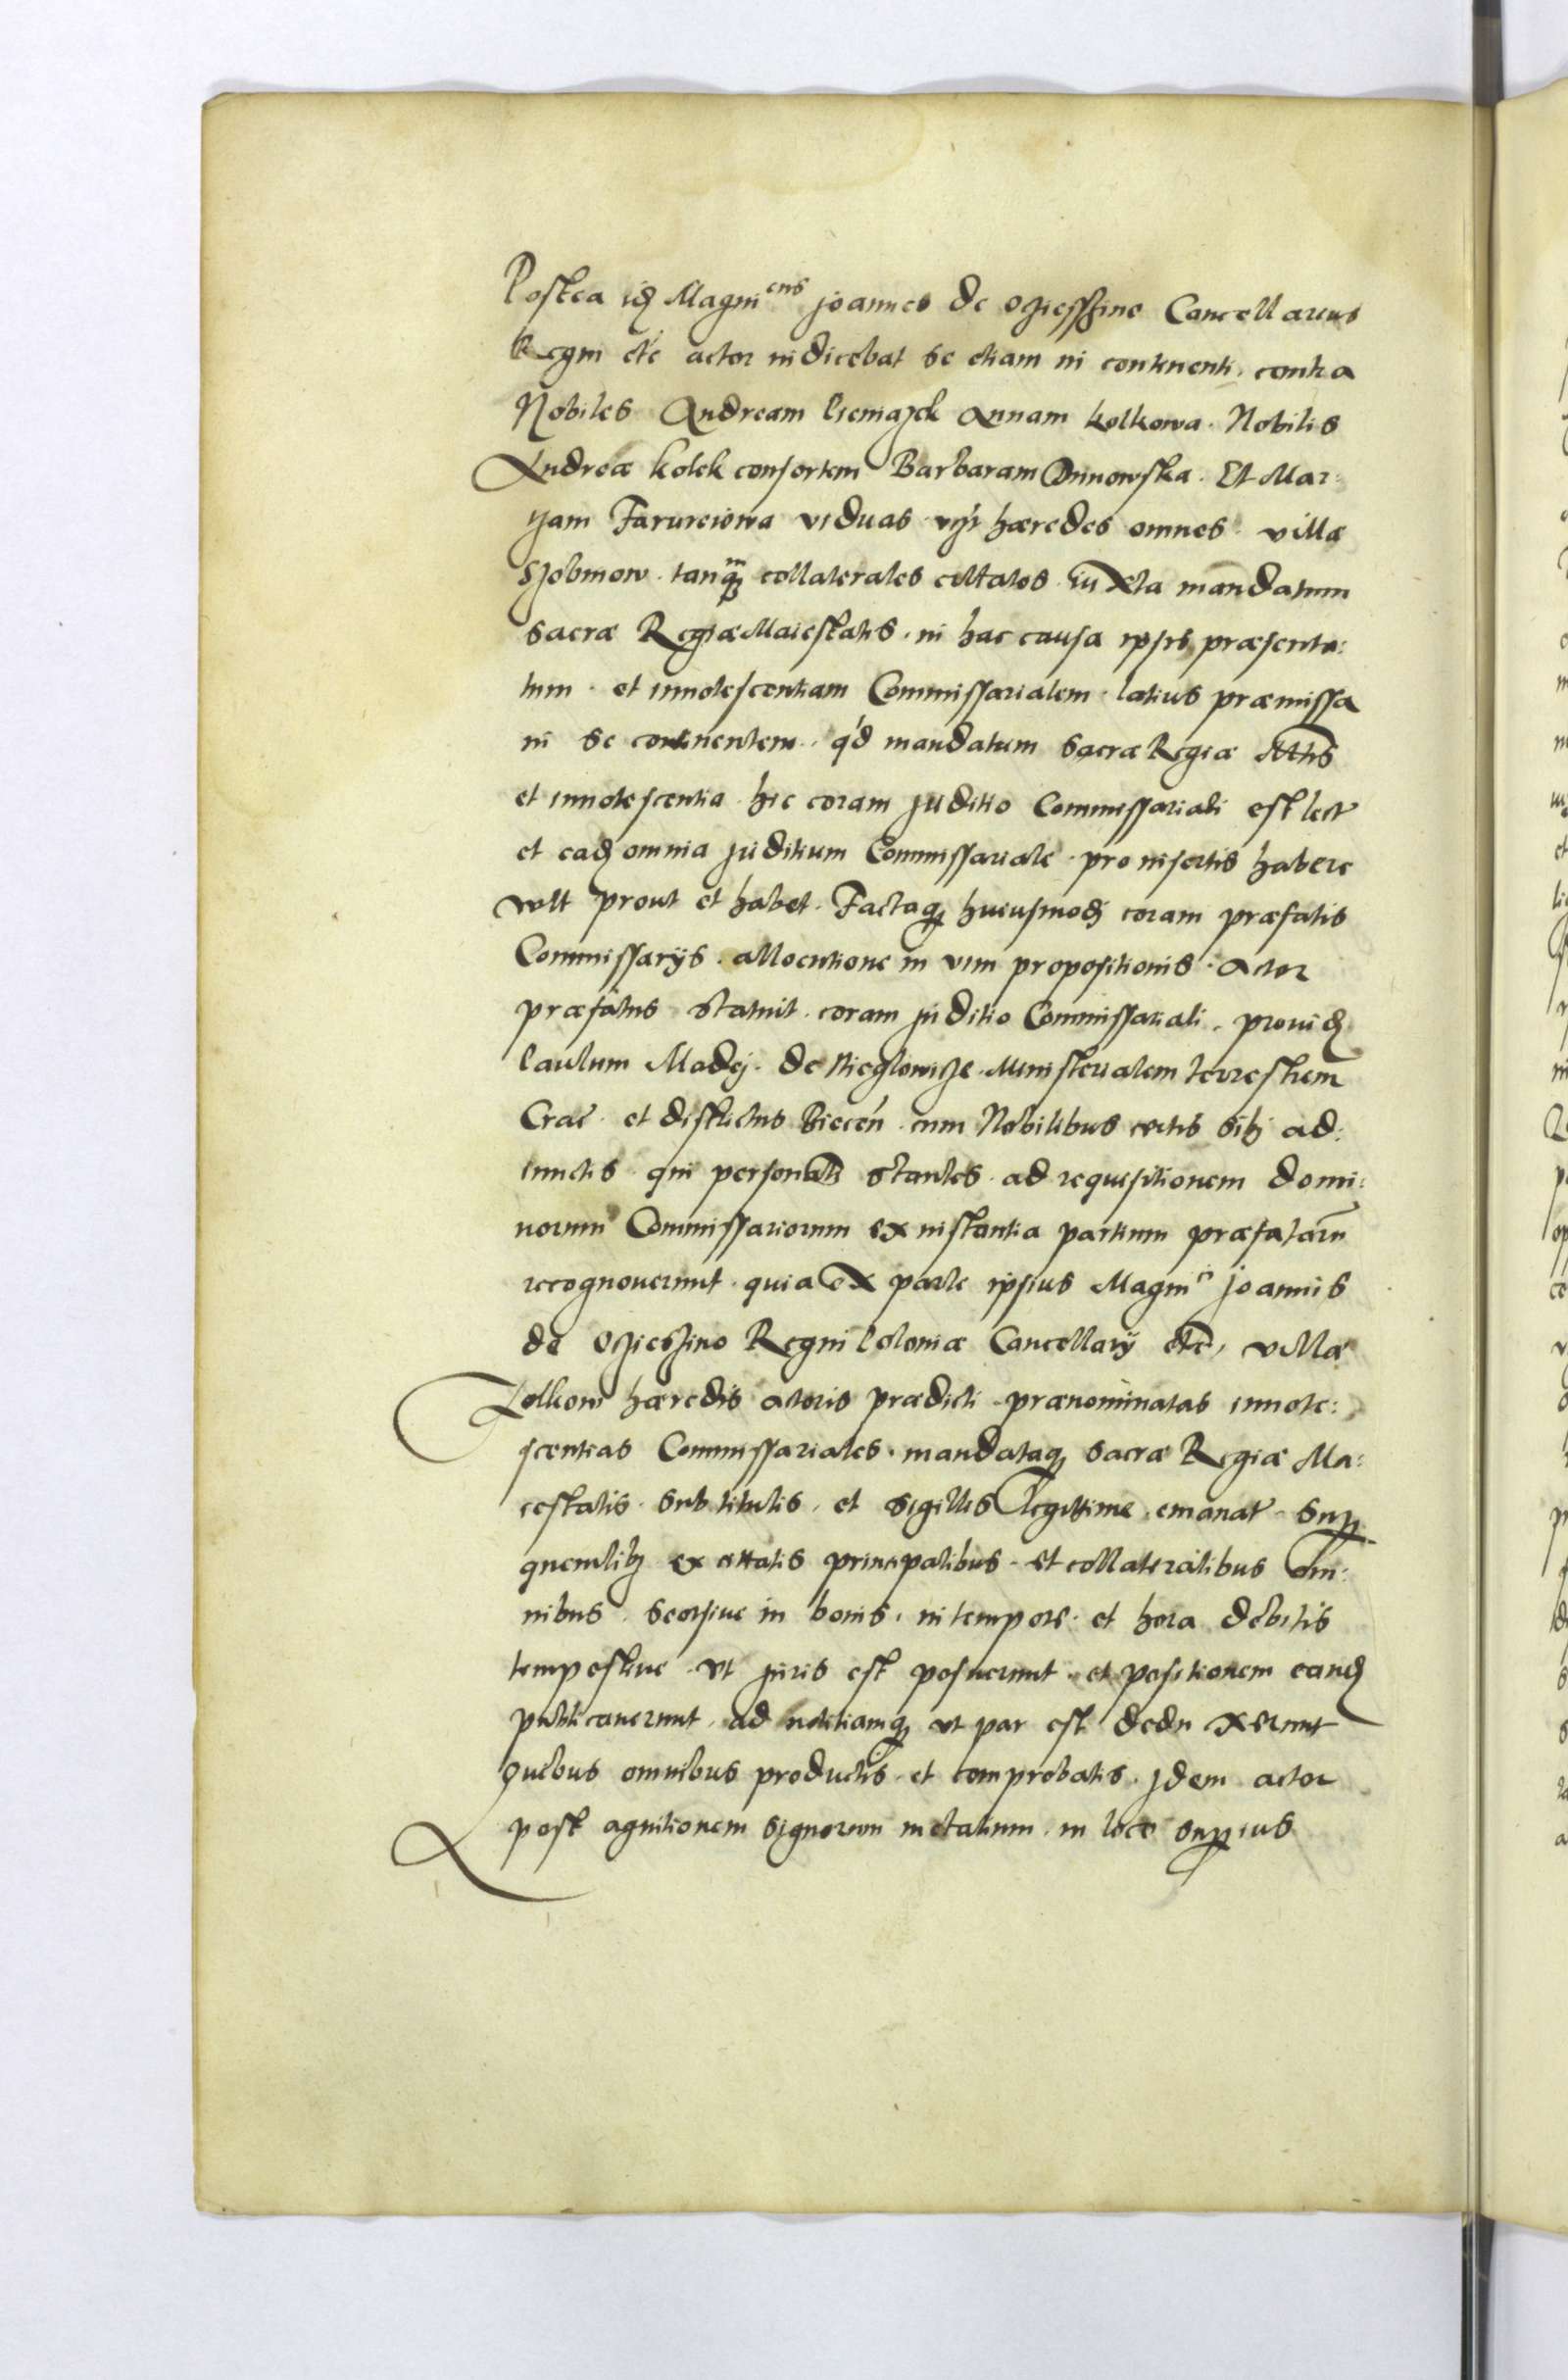 Postea idẽ Magni^cus Joannes de Oczesszino Cancellarius
Regni etc̃ actor indicebat se etiam in continenti contra
Nobiles Andream Pieniążek Annam Kolkowa Nobilis
Andreæ Kolek consortem Barbaram Et Mar:
viduas hæredes omnes villæ
tanq̃ᵐ collaterales cittatos iuxta mandatum
sacræ Regiæ Maiestatis in hac causa ipsis præsenta:
tum et innotescentiam Commissarialem latius præmissa
in se continentem q'd mandatum sacræ Regiæ Mttis
et innotescentia hic coram juditio Commissariali est lect
et eadẽ omnia juditium Commissariale pro insertis habere
vult prout et habet. Factaq huiusmodi coram præfatis
Commissarijs allocutione in vim propositionis Actor
præfatus statuit coram juditio Commissariali providũ
Paulum Madej de Ministerialem terrestrem
Crac̃ et districtus Biecen̄ cum Nobilibus certis sibi ad:
iunctis qui personalr stantes ad requisitionem domi:
norum Commissariorum ex instantia partium præfatarũ
recognoverunt quia ex parte ipsius Magni^ci Joannis
de Oczieszino Regni Poloniæ Cancellarij etc̃, villæ
Zolkow hæredis actoris prædicti prænominatas innote:
scentias Commissariales mandataq sacræ Regiæ Ma:
iestatis sub titulis et sigillis legittime emanat sup
quemlibꝫ ex cittatis principalibus et collateralibus om:
nibus seorsive in bonis in tempore et hora debitis
tempestive ut juris est posuerunt et positionem eandẽ
publicaverunt ad notitiamq ut par est deduxerunt
Quibus omnibus productis et comprobatis Jdem actor
post agnitionem signorum metalium in loco superius